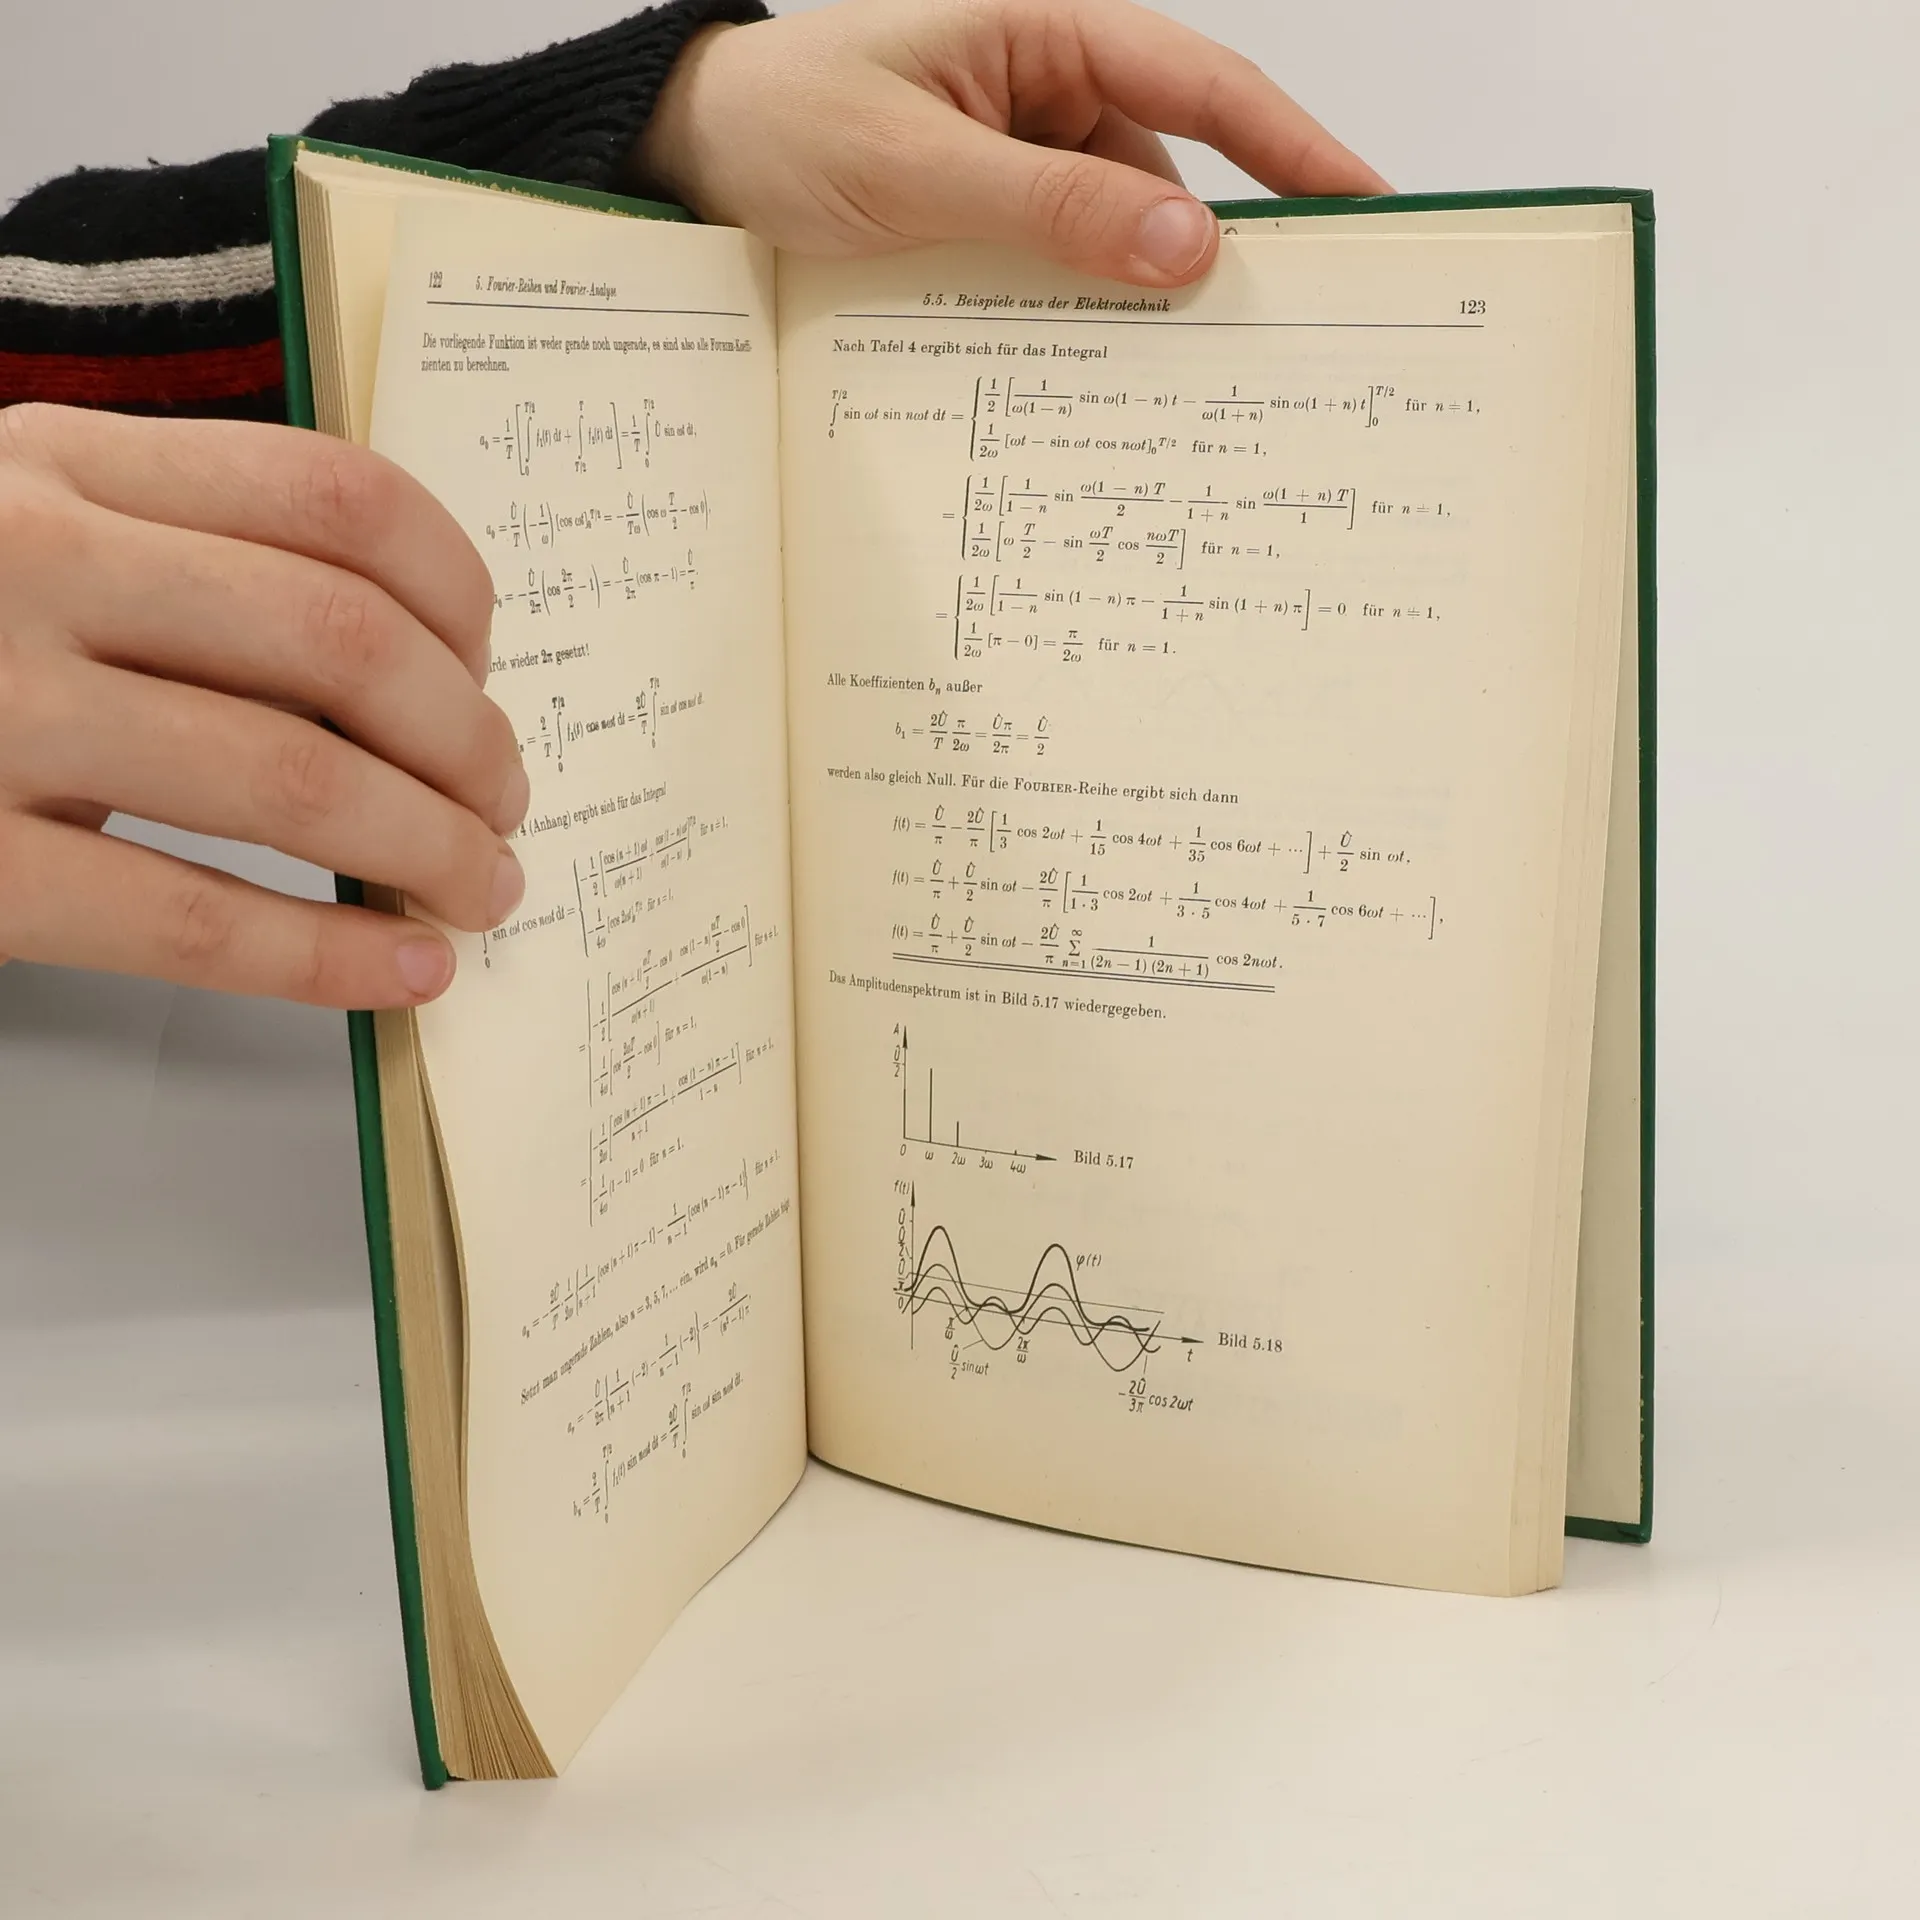 122 5. Fourier-Reihen und Fourier-Analyse
Die vorliegende Funktion ist weder gerade noch ungerade, es sind also alle FOURIER-Koeffi-
zienten zu berechnen.
a₀ = 1/T [∫₀^{T/2} f₁(t) dt + ∫_{T/2}^{T} f₂(t) dt] = 1/T ∫₀^{T/2} Û sin ωt dt,
a₀ = Û/T (−1/ω) [cos ωt]₀^{T/2} = −Û/Tω (cos ω T/2 − cos 0),
= −Û/2π (cos 2π/2 − 1) = −Û/2π (cos π − 1) = Û/π.
wieder 2π gesetzt!
= 2/T ∫₀^{T/2} f₁(t) cos nωt dt = 2Û/T ∫₀^{T/2} sin ωt cos nωt dt.
4 (Anhang) ergibt sich für das Integral
sin ωt cos nωt dt = { −1/2 [cos (n + 1) ωt/ω(n + 1) + cos (1 − n) ωt/ω(1 − n)]₀^{T/2} für n ≠ 1,
−1/4ω [cos 2ωt]₀^{T/2} für n = 1,
Setzt man ungerade Zahlen, also n = 3, 5, 7, ... ein, wird aₙ = 0. Für gerade Zahlen folgt
bₙ = 2/T ∫₀^{T/2} f₁(t) sin nωt dt = 2Û/T ∫₀^{T/2} sin ωt sin nωt dt.
5.5. Beispiele aus der Elektrotechnik 123
Nach Tafel 4 ergibt sich für das Integral
∫₀^{T/2} sin ωt sin nωt dt = { 1/2 [1/ω(1 − n) sin ω(1 − n) t − 1/ω(1 + n) sin ω(1 + n) t]₀^{T/2} für n ≠ 1,
1/2ω [ωt − sin ωt cos nωt]₀^{T/2} für n = 1,
= { 1/2ω [1/1 − n sin ω(1 − n) T/2 − 1/1 + n sin ω(1 + n) T/1] für n ≠ 1,
1/2ω [ω T/2 − sin ωT/2 cos nωT/2] für n = 1,
= { 1/2ω [1/1 − n sin (1 − n) π − 1/1 + n sin (1 + n) π] = 0 für n ≠ 1,
1/2ω [π − 0] = π/2ω für n = 1.
Alle Koeffizienten bₙ außer
b₁ = 2Û/T π/2ω = Ûπ/2π = Û/2
werden also gleich Null. Für die FOURIER-Reihe ergibt sich dann
f(t) = Û/π − 2Û/π [1/3 cos 2ωt + 1/15 cos 4ωt + 1/35 cos 6ωt + ···] + Û/2 sin ωt,
f(t) = Û/π + Û/2 sin ωt − 2Û/π [1/1 · 3 cos 2ωt + 1/3 · 5 cos 4ωt + 1/5 · 7 cos 6ωt + ···],
f(t) = Û/π + Û/2 sin ωt − 2Û/π ∑_{n=1}^{∞} 1/(2n − 1) (2n + 1) cos 2nωt.
Das Amplitudenspektrum ist in Bild 5.17 wiedergegeben.
A
Û/2
0 ω 2ω 3ω 4ω
Bild 5.17
f(t)
Û
Û/2
Û/π
0
φ(t)
π/ω
2π/ω
t
Bild 5.18
Û/2 sin ωt
−2Û/3π cos 2ωt